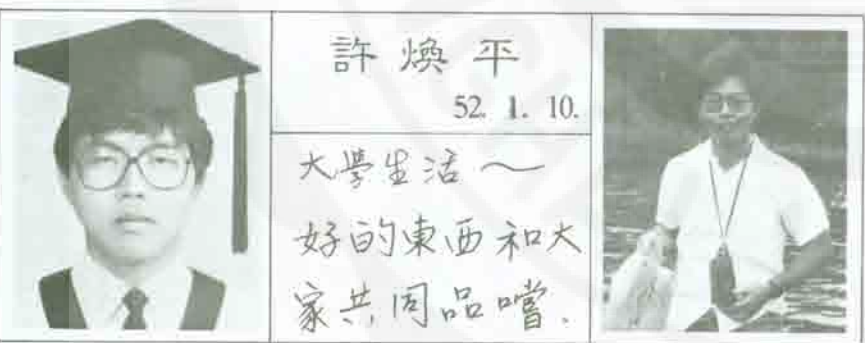 許煥平
52. 1. 10.
大學生活～
好的東西和大
家共同品嚐.